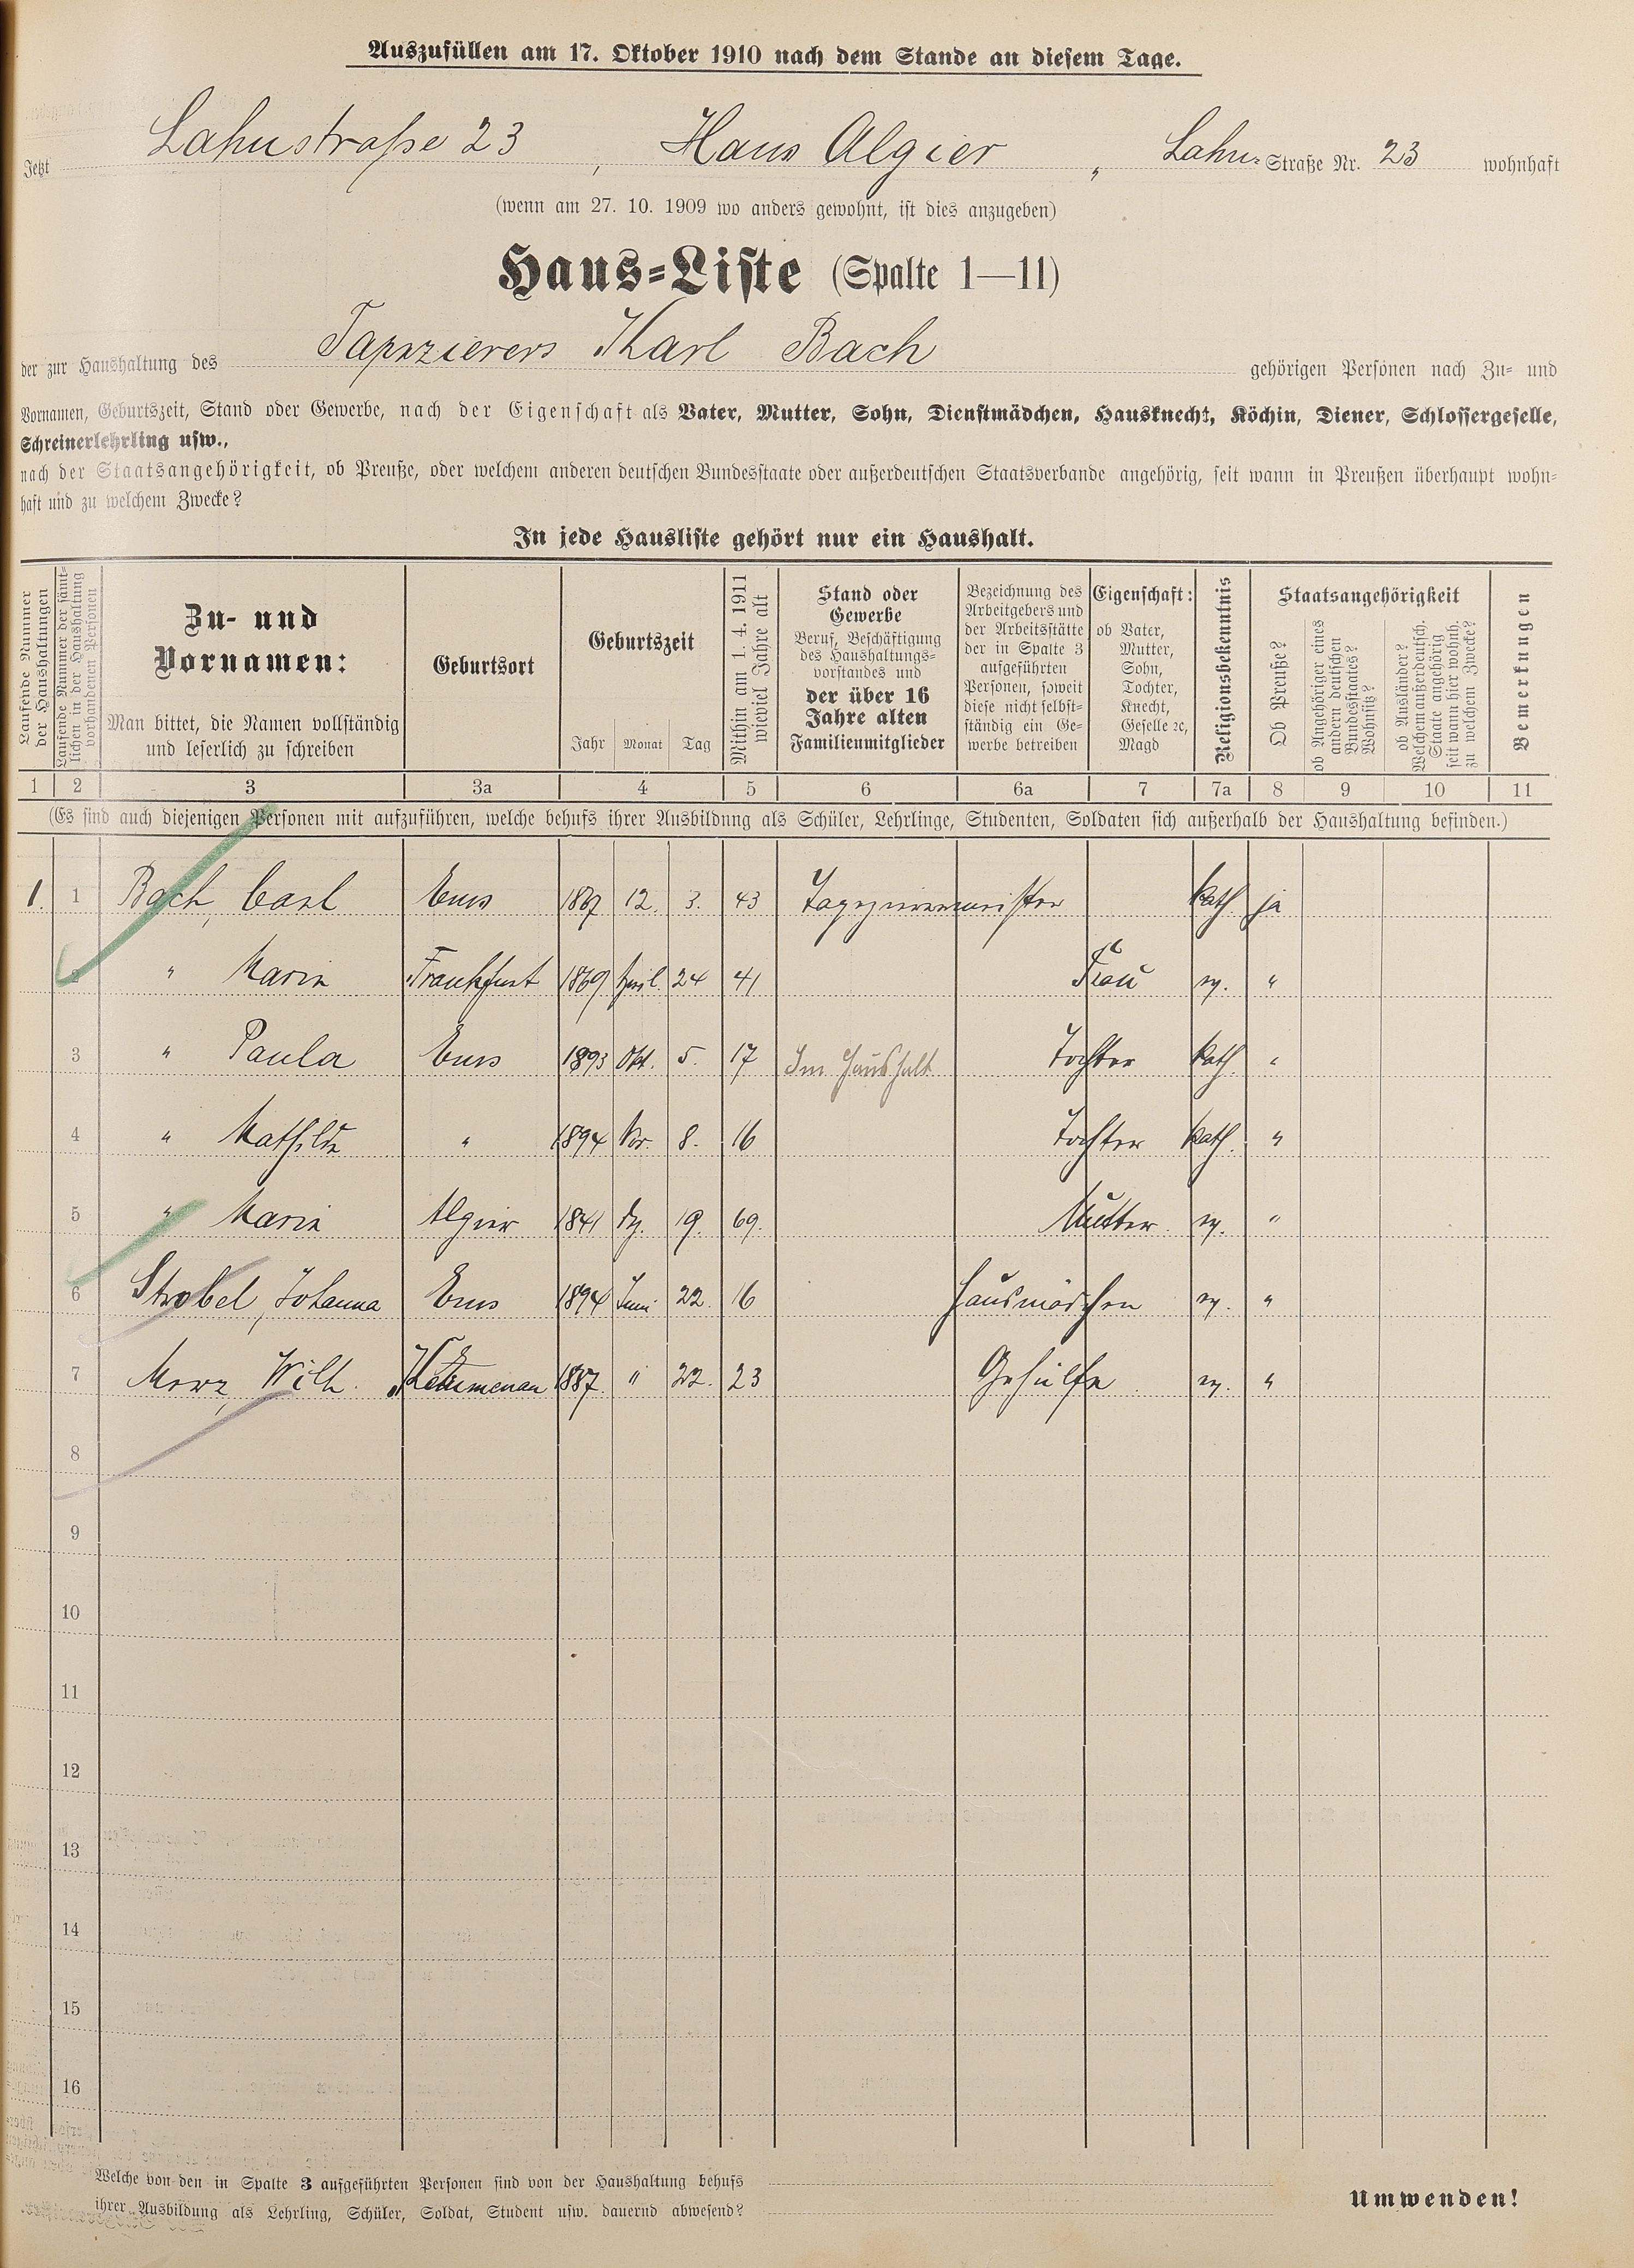 Auszufüllen am 17. Oktober 1910 nach dem Stande an diesem Tage.
Jetzt Lahnstraße 23, Haus Algier, Lahn-Straße Nr. 23 wohnhaft
(wenn am 27. 10. 1909 wo anders gewohnt, ist dies anzugeben)
Haus-Liste (Spalte 1—11)
der zur Haushaltung des Tapezierers Karl Bach gehörigen Personen nach Zu- und
Vornamen, Geburtszeit, Stand oder Gewerbe, nach der Eigenschaft als Vater, Mutter, Sohn, Dienstmädchen, Hausknecht, Köchin, Diener, Schlossergeselle,
Schreinerlehrling usw.,
nach der Staatsangehörigkeit, ob Preuße, oder welchem anderen deutschen Bundesstaate oder außerdeutschen Staatsverbande angehörig, seit wann in Preußen überhaupt wohn-
haft und zu welchem Zwecke?
In jede Hausliste gehört nur ein Haushalt.
Laufende Nummer
der Haushaltungen
Laufende Nummer der sämt-
lichen in der Haushaltung
vorhandenen Personen
Zu- und
Vornamen:
Man bittet, die Namen vollständig
und leserlich zu schreiben
Geburtsort
Geburtszeit
Jahr Monat Tag
Mithin am 1. 4. 1911
wieviel Jahre alt
Stand oder
Gewerbe
Beruf, Beschäftigung
des Haushaltungs-
vorstandes und
der über 16
Jahre alten
Familienmitglieder
Bezeichnung des
Arbeitgebers und
der Arbeitsstätte
der in Spalte 3
aufgeführten
Personen, soweit
diese nicht selbst-
ständig ein Ge-
werbe betreiben
Eigenschaft:
ob Vater,
Mutter,
Sohn,
Tochter,
Knecht,
Geselle ꝛc,
Magd
Religionsbekenntnis
Staatsangehörigkeit
Ob Preuße?
ob Angehöriger eines
andern deutschen
Bundesstaates?
Wohnsitz?
ob Ausländer?
Welchem außerdeutsch.
Staate angehörig
seit wann hier wohnh.
zu welchem Zwecke?
Bemerkungen
1 2 3 3a 4 5 6 6a 7 7a 8 9 10 11
(Es sind auch diejenigen Personen mit aufzuführen, welche behufs ihrer Ausbildung als Schüler, Lehrlinge, Studenten, Soldaten sich außerhalb der Haushaltung befinden.)
1. 1 Bach, Carl Ems 1867 12. 3. 43 Tapezierermeister kath ja
2 " Maria Frankfurt 1869 April 24 41 Frau ev. "
3 " Paula Ems 1893 Okt. 5. 17 Im Haushalt Tochter kath. "
4 " Mathilde " 1894 Nov. 8. 16 Tochter kath. "
5 " Maria Algier 1841 Dz. 19. 69. Mutter ev. "
6 Strobel, Johanna Ems 1894 Juni 22. 16 Hausmädchen ev. "
7 Merz, Wilh. 1887. " 22. 23 Gehülfe ev. "
8
9
10
11
12
13
14
15
16
Welche von den in Spalte 3 aufgeführten Personen sind von der Haushaltung behufs
ihrer Ausbildung als Lehrling, Schüler, Soldat, Student usw. dauernd abwesend?
Umwenden!